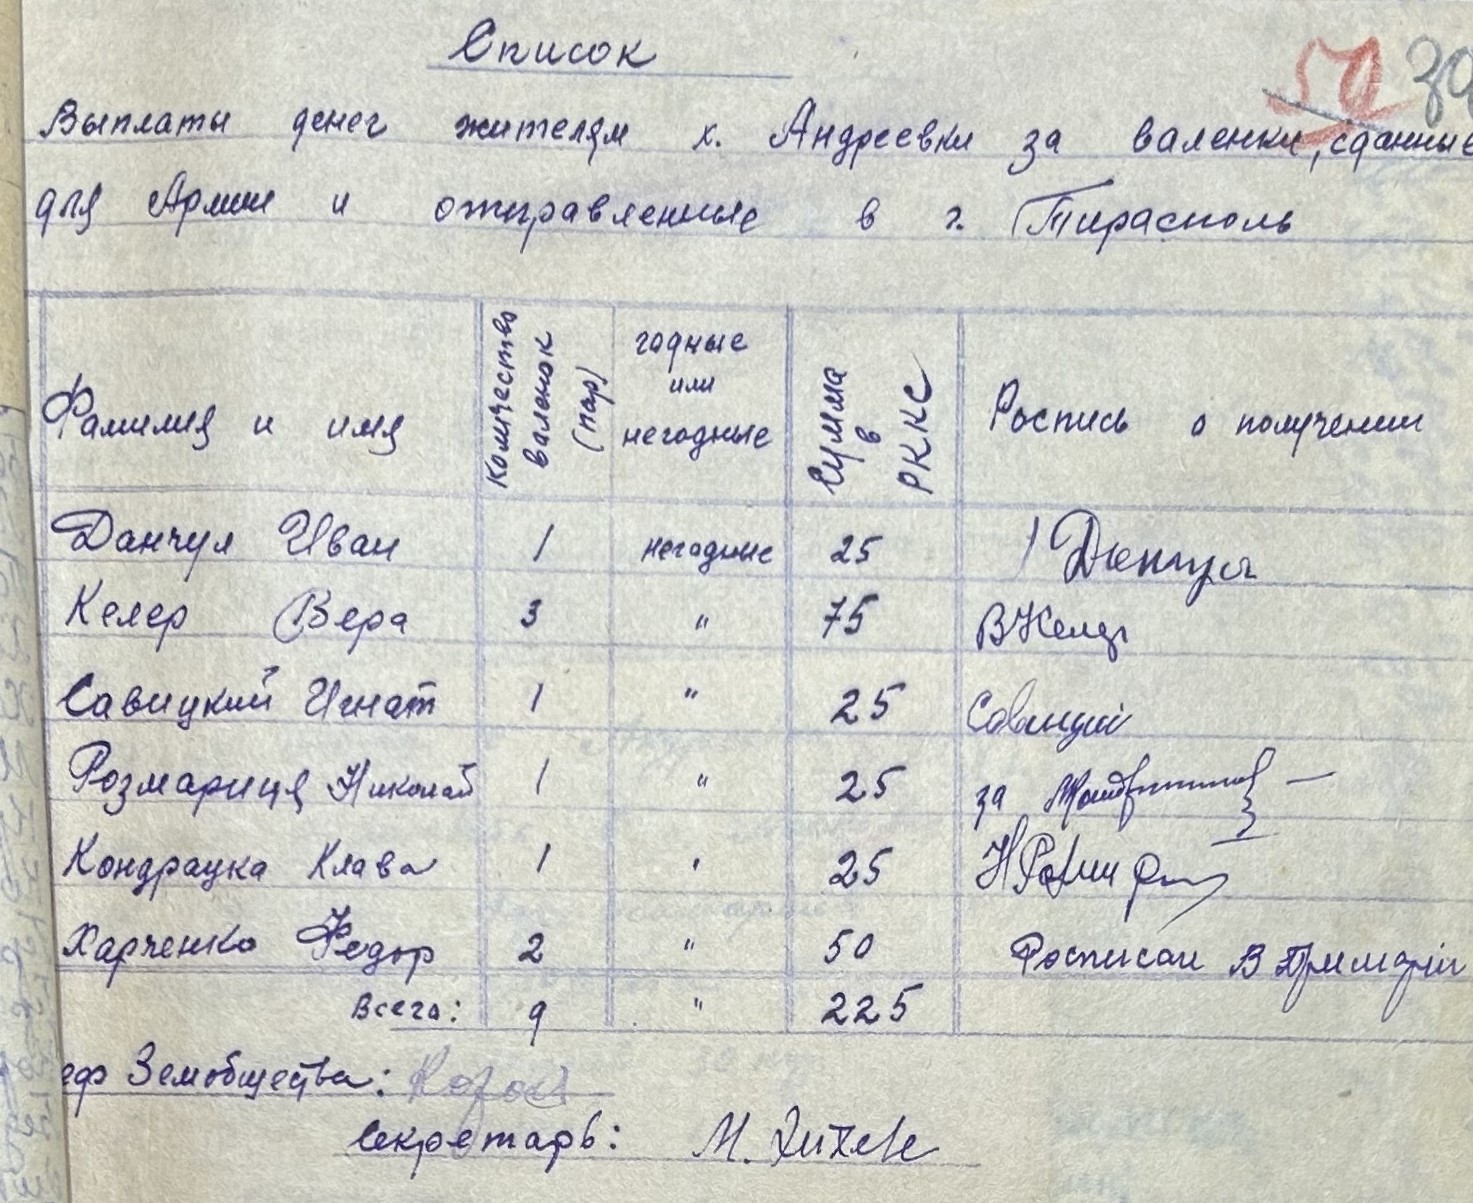 Список
50 39
Выплаты денег жителям х. Андреевки за валенки, сданные
для Армии и отправленные в г. Тирасполь
Фамилия и имя Количество валенок (пар) годные или негодные Сумма в РККС Роспись о получении
Данчул Иван 1 негодные 25 Данчул
Келер Вера 3 " 75 ВКелер
Савицкий Игнат 1 " 25 Савицкий
Розмариця Николай 1 " 25 за
Кондрацка Клава 1 " 25
Харченко Федор 2 " 50 Росписал В Примарии
Всего: 9 " 225
еф Земобщества:
Секретарь: М.